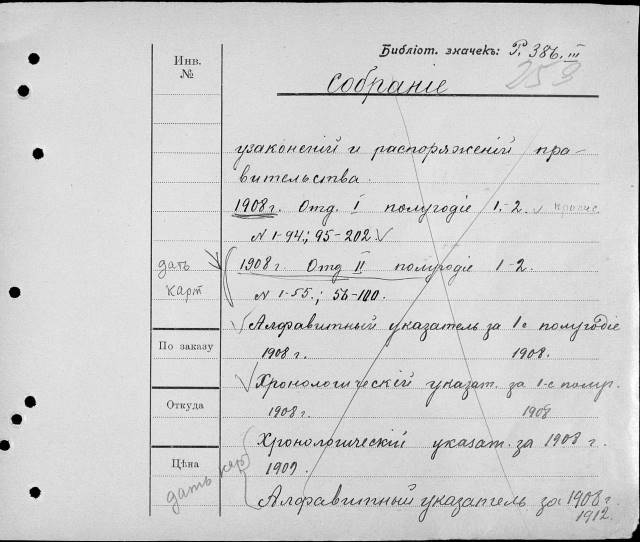 Библіот. значекъ: Р. 386. III
253
Инв.
№
Собраніе
узаконеній и распоряженій пра-
вительства.
1908 г. Отд. I полугодіе 1.-2.
N 1-94; 95-202.
дать
карт
1908 г. Отд II полугодіе 1-2.
N 1-55.; 56-100.
Алфавитный указатель за 1е полугодіе
1908 г. 1908.
По заказу
Хронологическій указат. за 1-е полуг.
1908 г. 1908
Откуда
Хронологическій указат. за 1908 г.
1909.
Цѣна
дать кар
Алфавитный указатель за 1908 г.
1912.